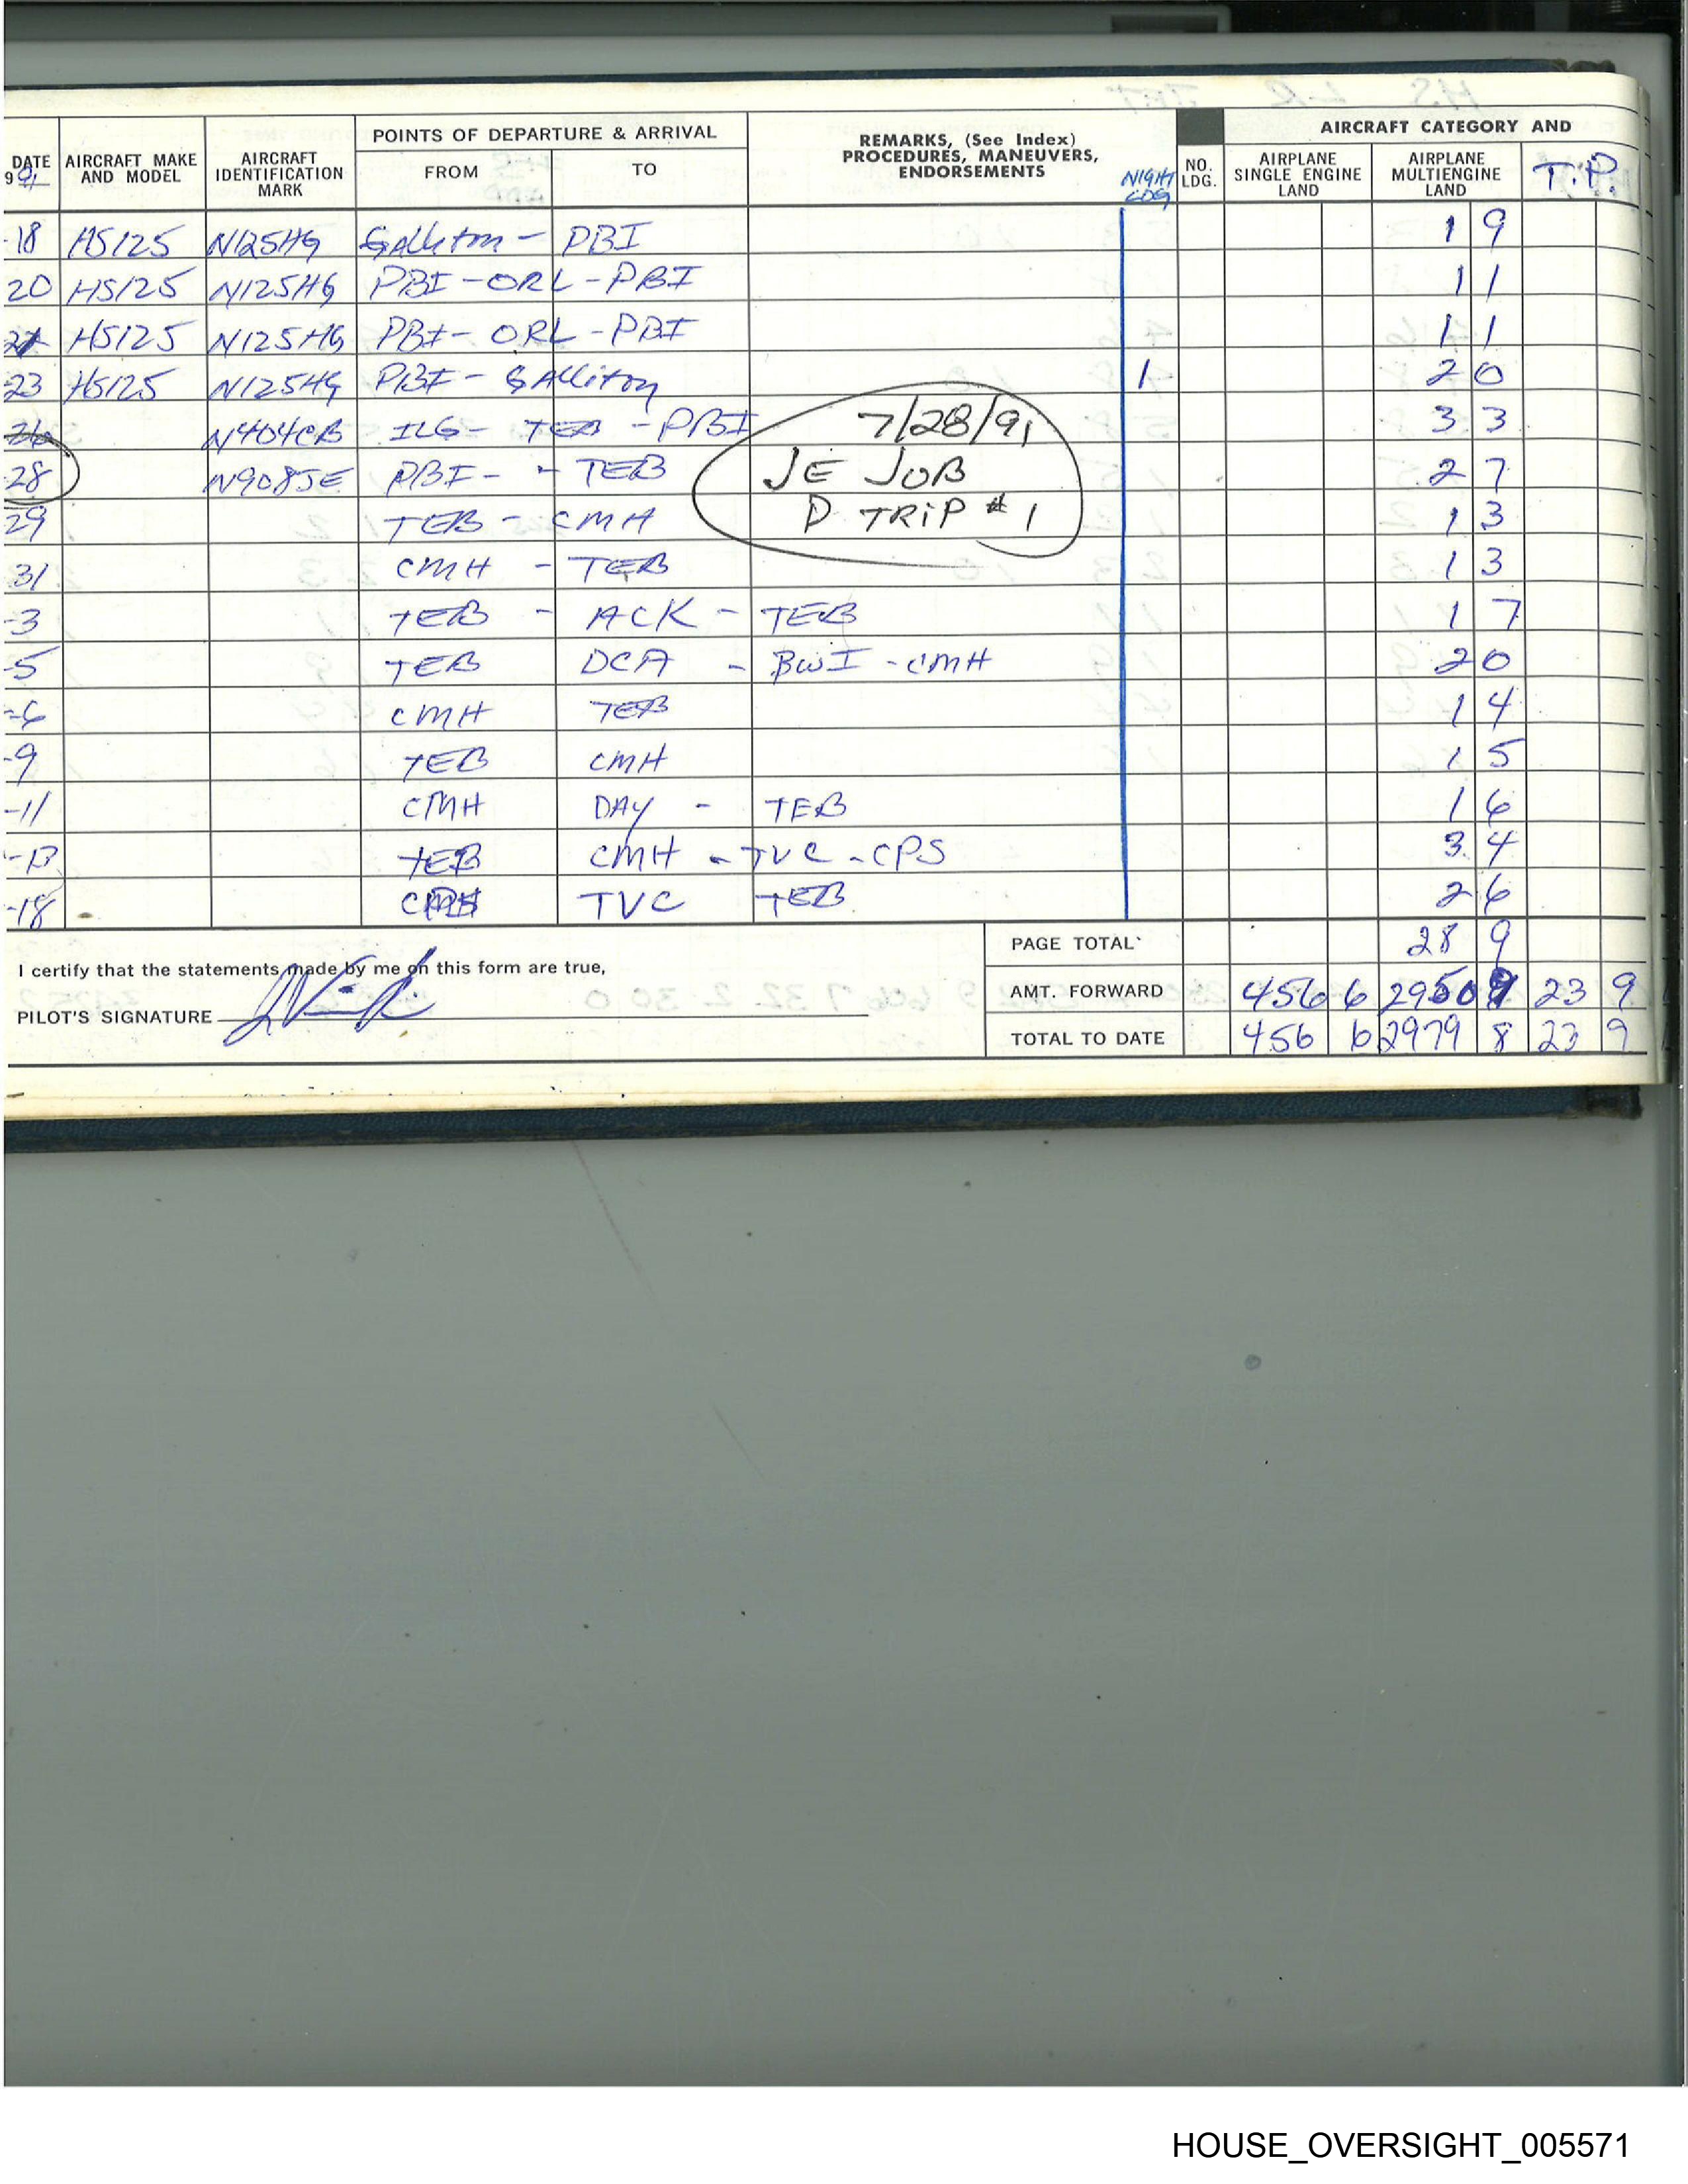 POINTS OF DEPARTURE & ARRIVAL REMARKS, (See Index) PROCEDURES, MANEUVERS, ENDORSEMENTS AIRCRAFT CATEGORY AND
DATE 9 91 AIRCRAFT MAKE AND MODEL AIRCRAFT IDENTIFICATION MARK FROM TO NIGHT LDG NO. LDG. AIRPLANE SINGLE ENGINE LAND AIRPLANE MULTIENGINE LAND T.P.
-18 HS125 N125HG Galliton - PBI 1 9
20 HS125 N125HG PBI - ORL - PBI 1 1
HS125 N125HG PBI - ORL - PBI 1 1
23 HS125 N125HG PBI - GAlliton 1 2 0
26 N404CB ILG - TEB - PBI 7/28/91 3 3
28 N908JE PBI - - TEB JE JOB 2 7
29 TEB - CMH D TRIP # 1 1 3
31 CMH - TEB 1 3
-3 TEB - ACK - TEB 1 7
-5 TEB DCA - BWI - CMH 2 0
-6 CMH TEB 1 4
-9 TEB CMH 1 5
-11 CMH DAY - TEB 1 6
-13 TEB CMH - TVC - CPS 3 4
-18 TVC TEB 2 6
PAGE TOTAL 28 9
I certify that the statements made by me on this form are true,
AMT. FORWARD 456 6 2950 9 23 9
PILOT'S SIGNATURE
TOTAL TO DATE 456 6 2979 8 23 9
HOUSE_OVERSIGHT_005571